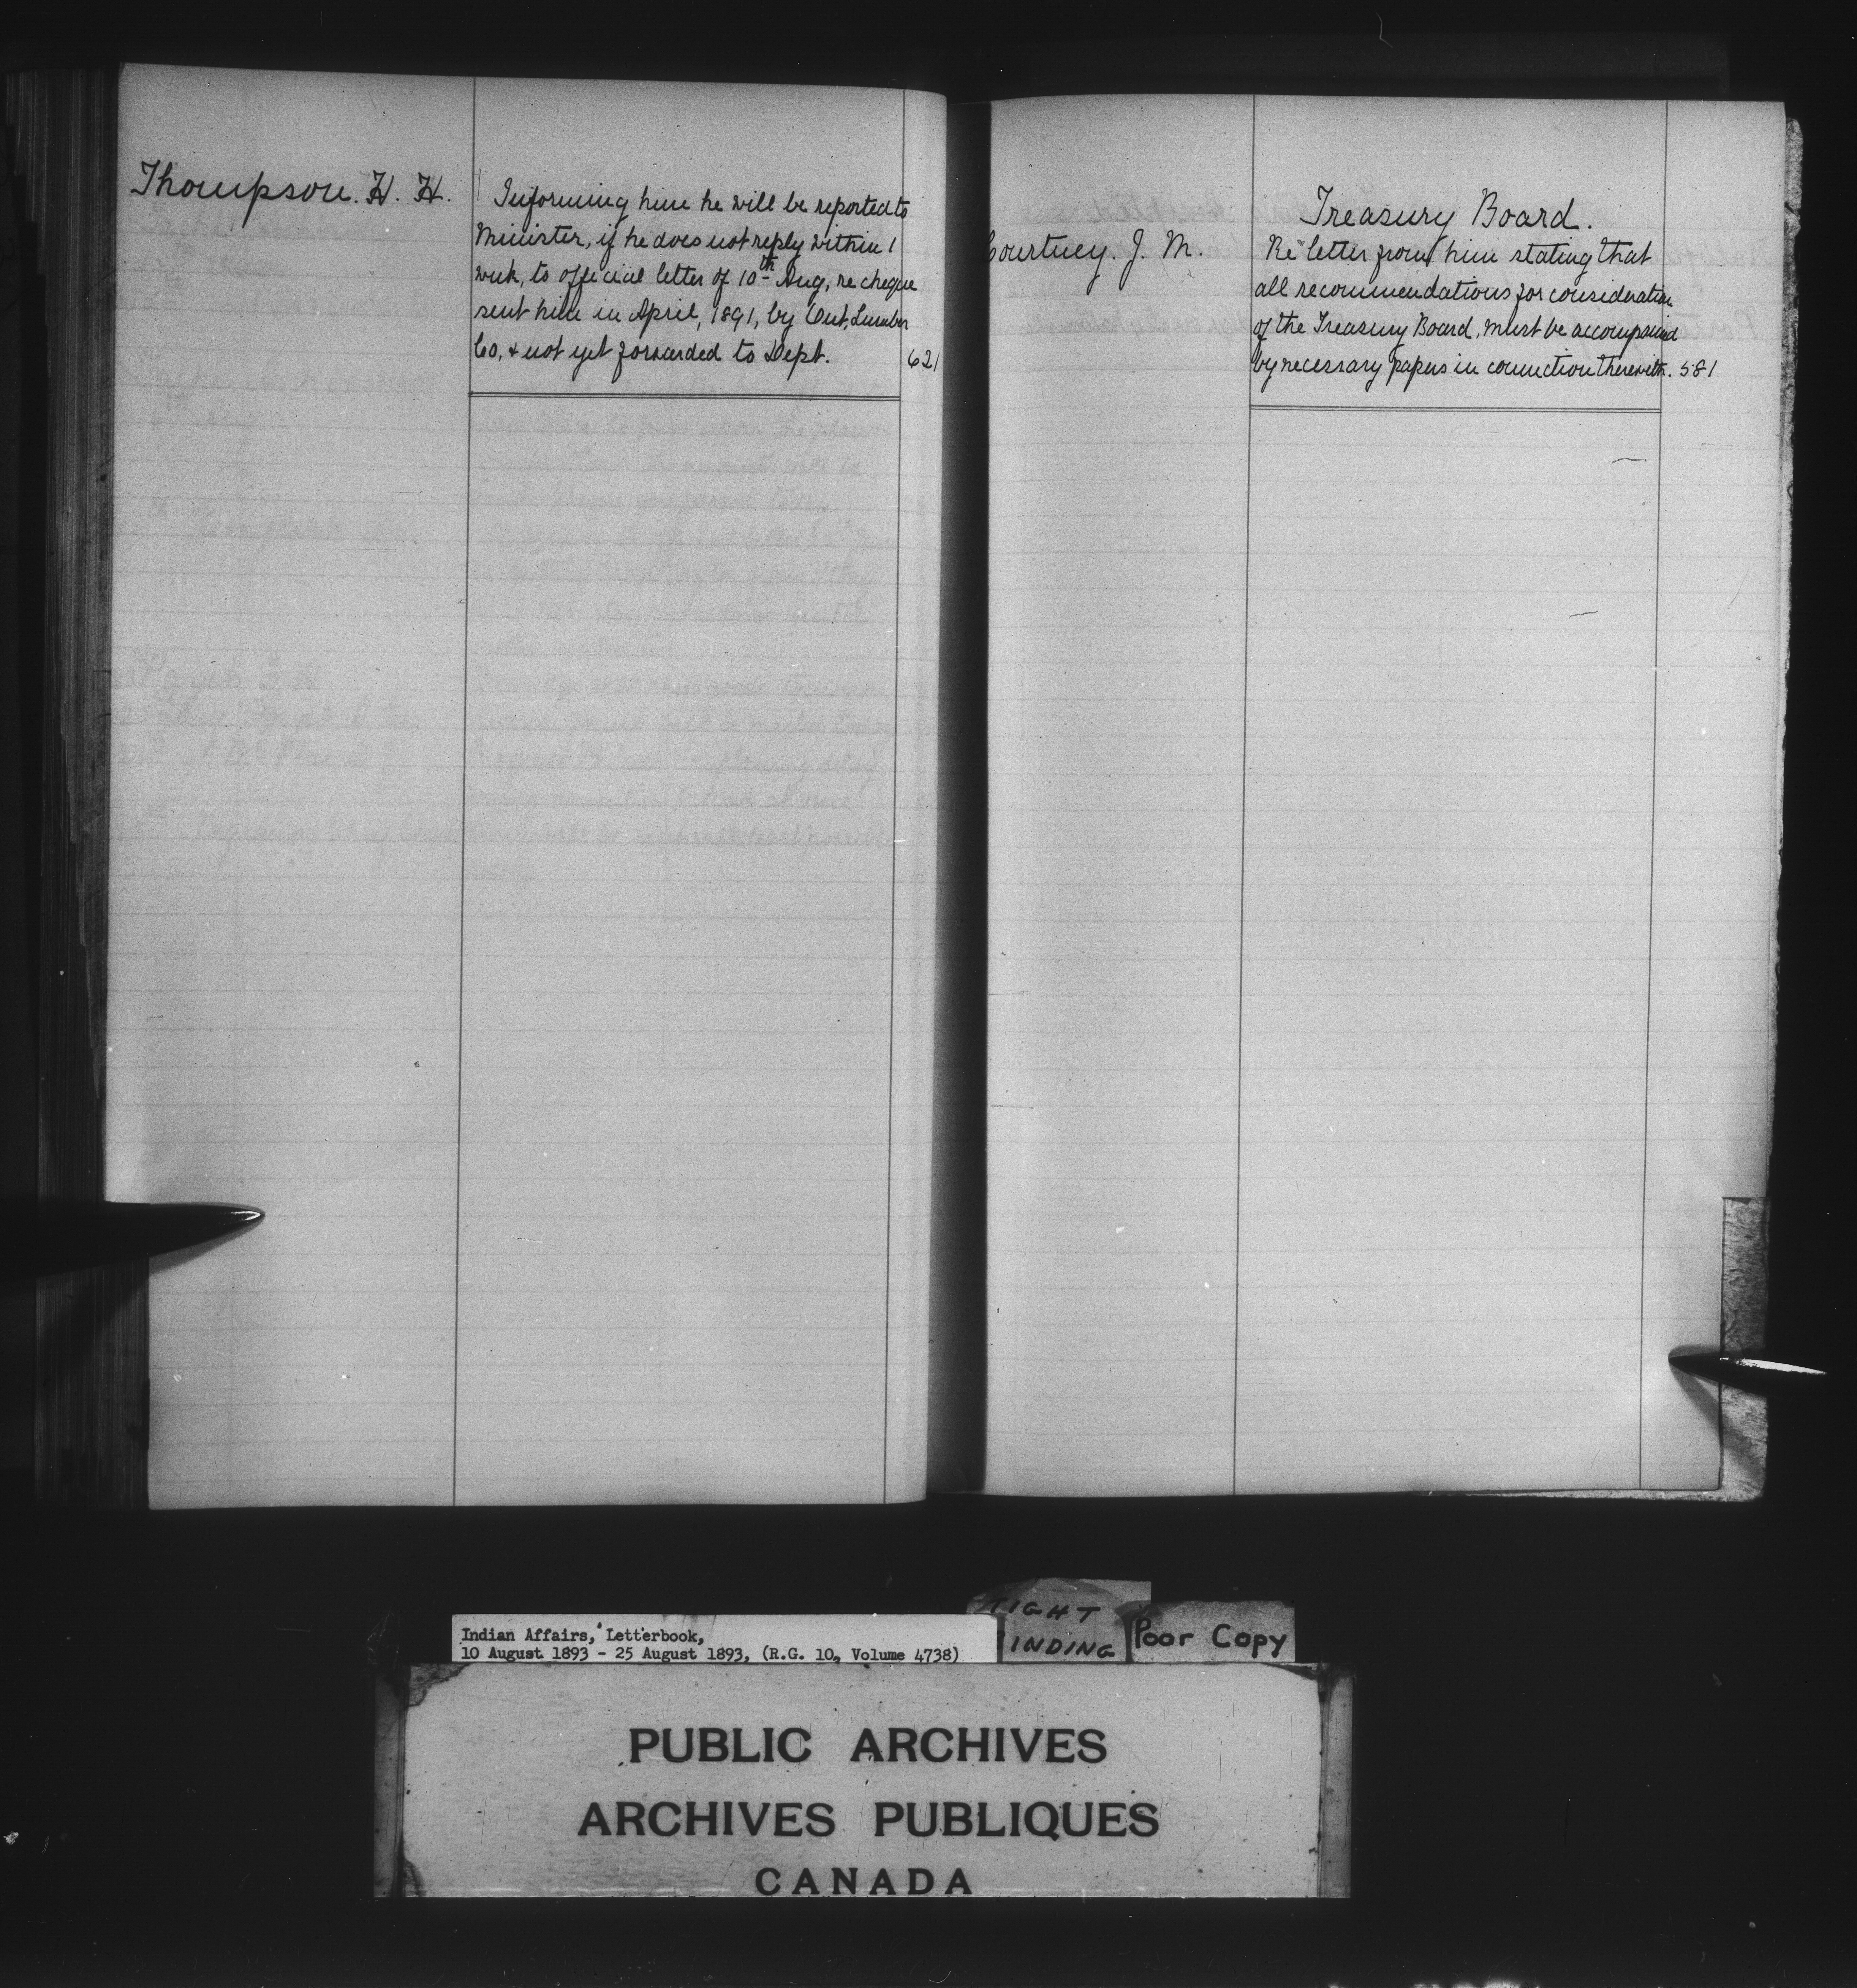 Thompson. H. H.
Informing him he will be reported to
Minister, if he does not reply within 1
week, to official letter of 10th Aug, re cheque
sent him in April, 1891, by Ont. Lumber
Co, & not yet forwarded to Dept. 621
Treasury Board.
Courtney. J. M.
Re letter from him stating that
all recommendations for consideration
of the Treasury Board, must be accompanied
by necessary papers in connection therewith. 581
TIGHT
BINDING
Poor Copy
Indian Affairs, Letterbook,
10 August 1893 - 25 August 1893, (R.G. 10, Volume 4738)
PUBLIC ARCHIVES
ARCHIVES PUBLIQUES
CANADA